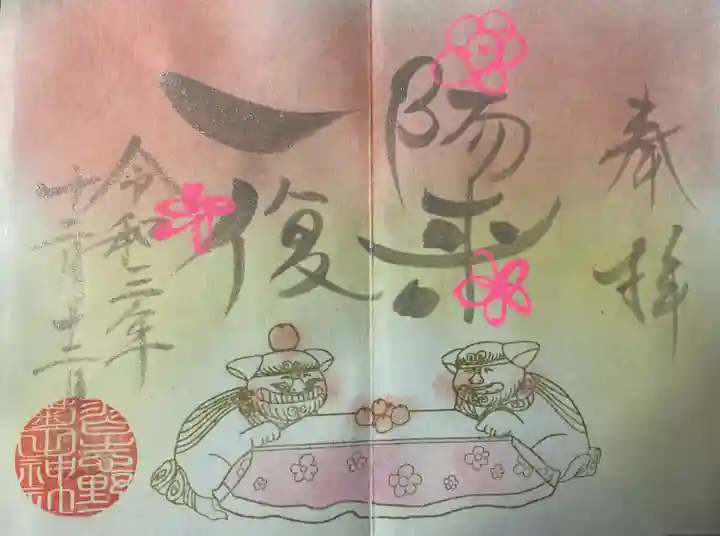 奉拝
一陽
来復
令和三年
十二月二十二日